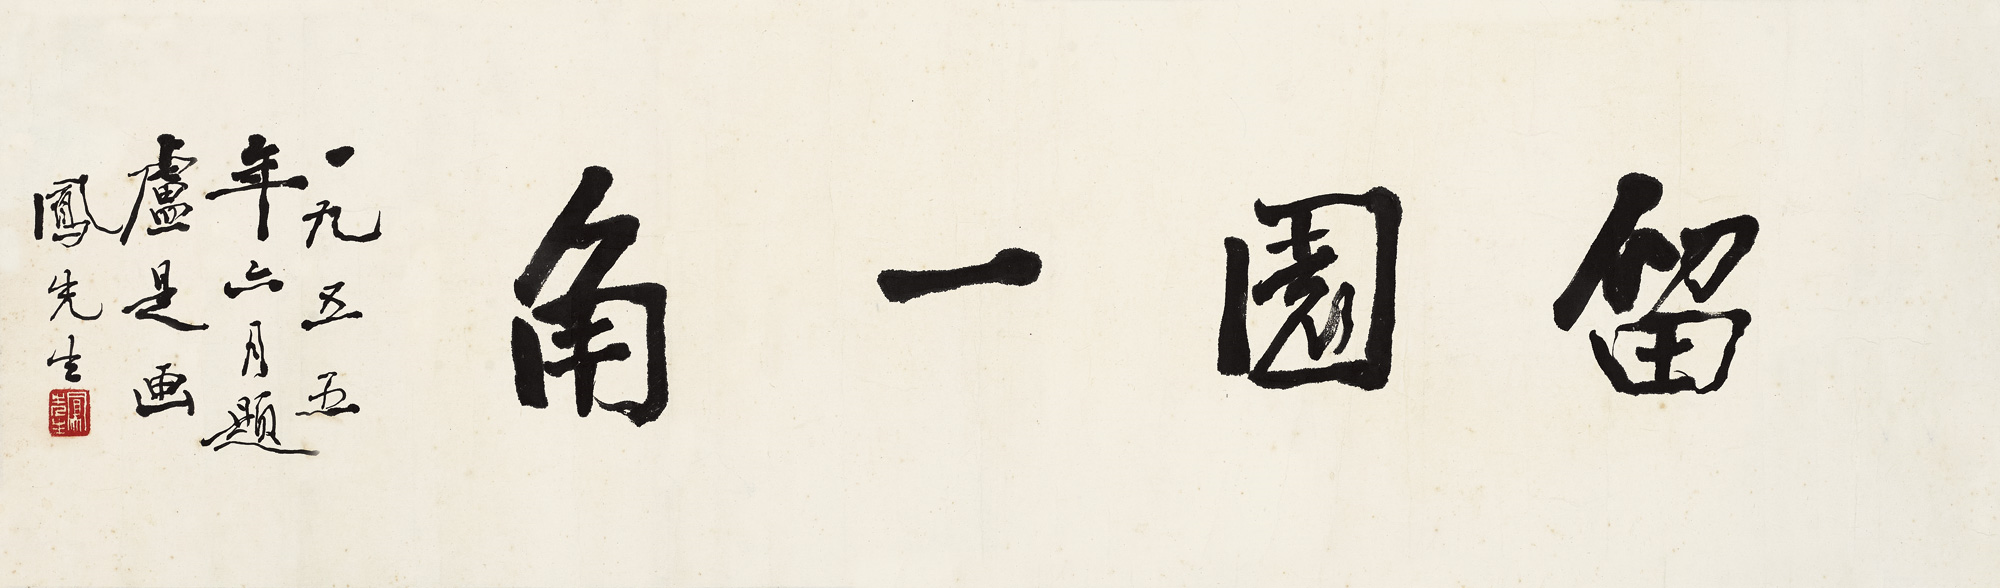 留園一角
一九五五
年六月題
盧是画
鳳先生